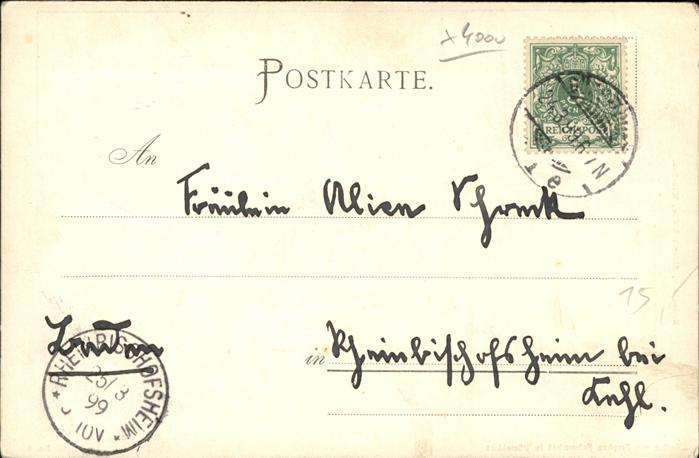 x 4000
POSTKARTE.
5
REICHSPOST
An
Fräulein Schrenk
15,
Baden
in Rheinbischofsheim bei
Kehl.
*RHEINBISCHOFSHEIM*
25/3
99
10V